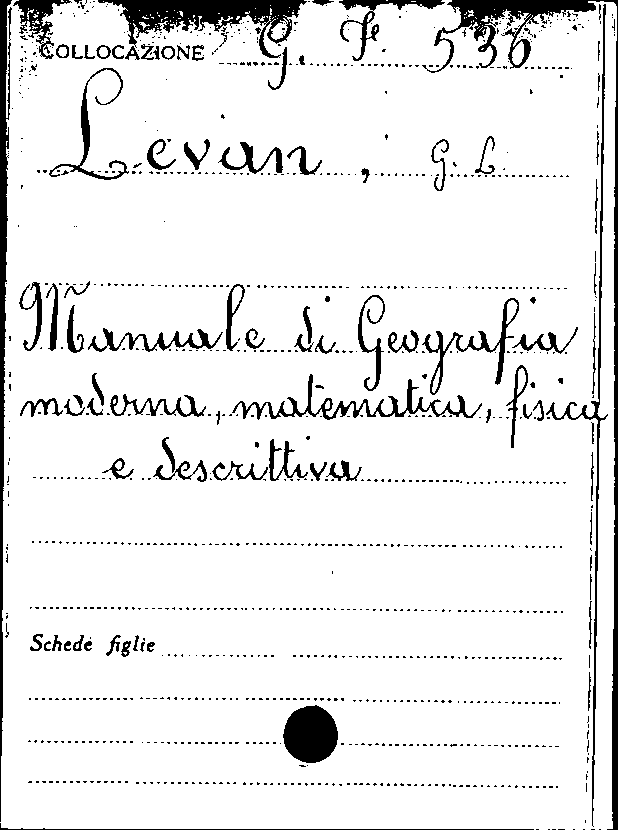 COLLOCAZIONE G. F. 536
Levan, G. L.
Manuale di Geografia
moderna, matematica, fisica
e descrittiva
Schede figlie